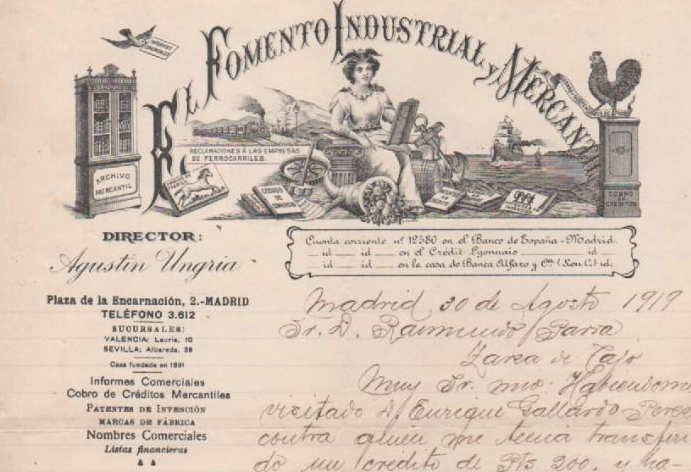 EL FOMENTO INDUSTRIAL y MERCANT
ARCHIVO
MERCANTIL
RECLAMACIONES Á LAS EMPRESAS
DE FERROCARRILES.
CODIGO
DE COMERCIO
COBRO
DE
CREDITOS
DIRECTOR:
Agustín Ungria
Cuenta corriente nº 12580 en el Banco de España-Madrid.
id en el Crédit Lyonnais id
id id en la casa de Banca Alfaro y Cª (Sen C) id.
Plaza de la Encarnación, 2.-MADRID
TELÉFONO 3.612
SUCURSALES:
VALENCIA: Lauria, 10
SEVILLA: Albareda, 38
Casa fundada en 1891
Informes Comerciales
Cobro de Créditos Mercantiles
PATENTES DE INVENCIÓN
MARCAS DE FÁBRICA
Nombres Comerciales
Listas financieras
Madrid 30 de Agosto 1919.
Sr. D. Raimundo Parra
Zarza de Tajo
Muy Sr. mio: Habiendome
visitado D. Enrique Gallardo Perez
contra quien me tenia transferi
do un crédito de Pts 200, y ha-